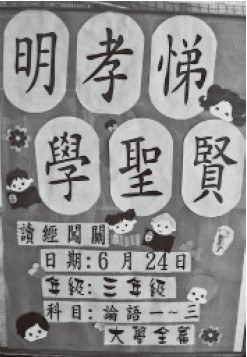 明孝悌
學聖賢
讀經闖關
日期:6月24日
年級:三年級
科目:論語一~三
大學全篇